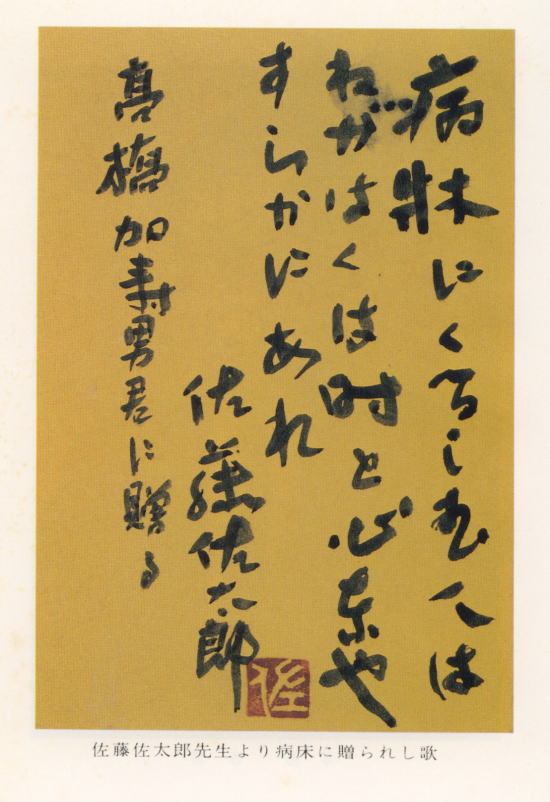 病牀にくるしむ人は
ねがはくは時と心や
すらかにあれ
佐藤佐太郎
佐
高橋加寿男君に贈る
佐藤佐太郎先生より病床に贈られし歌